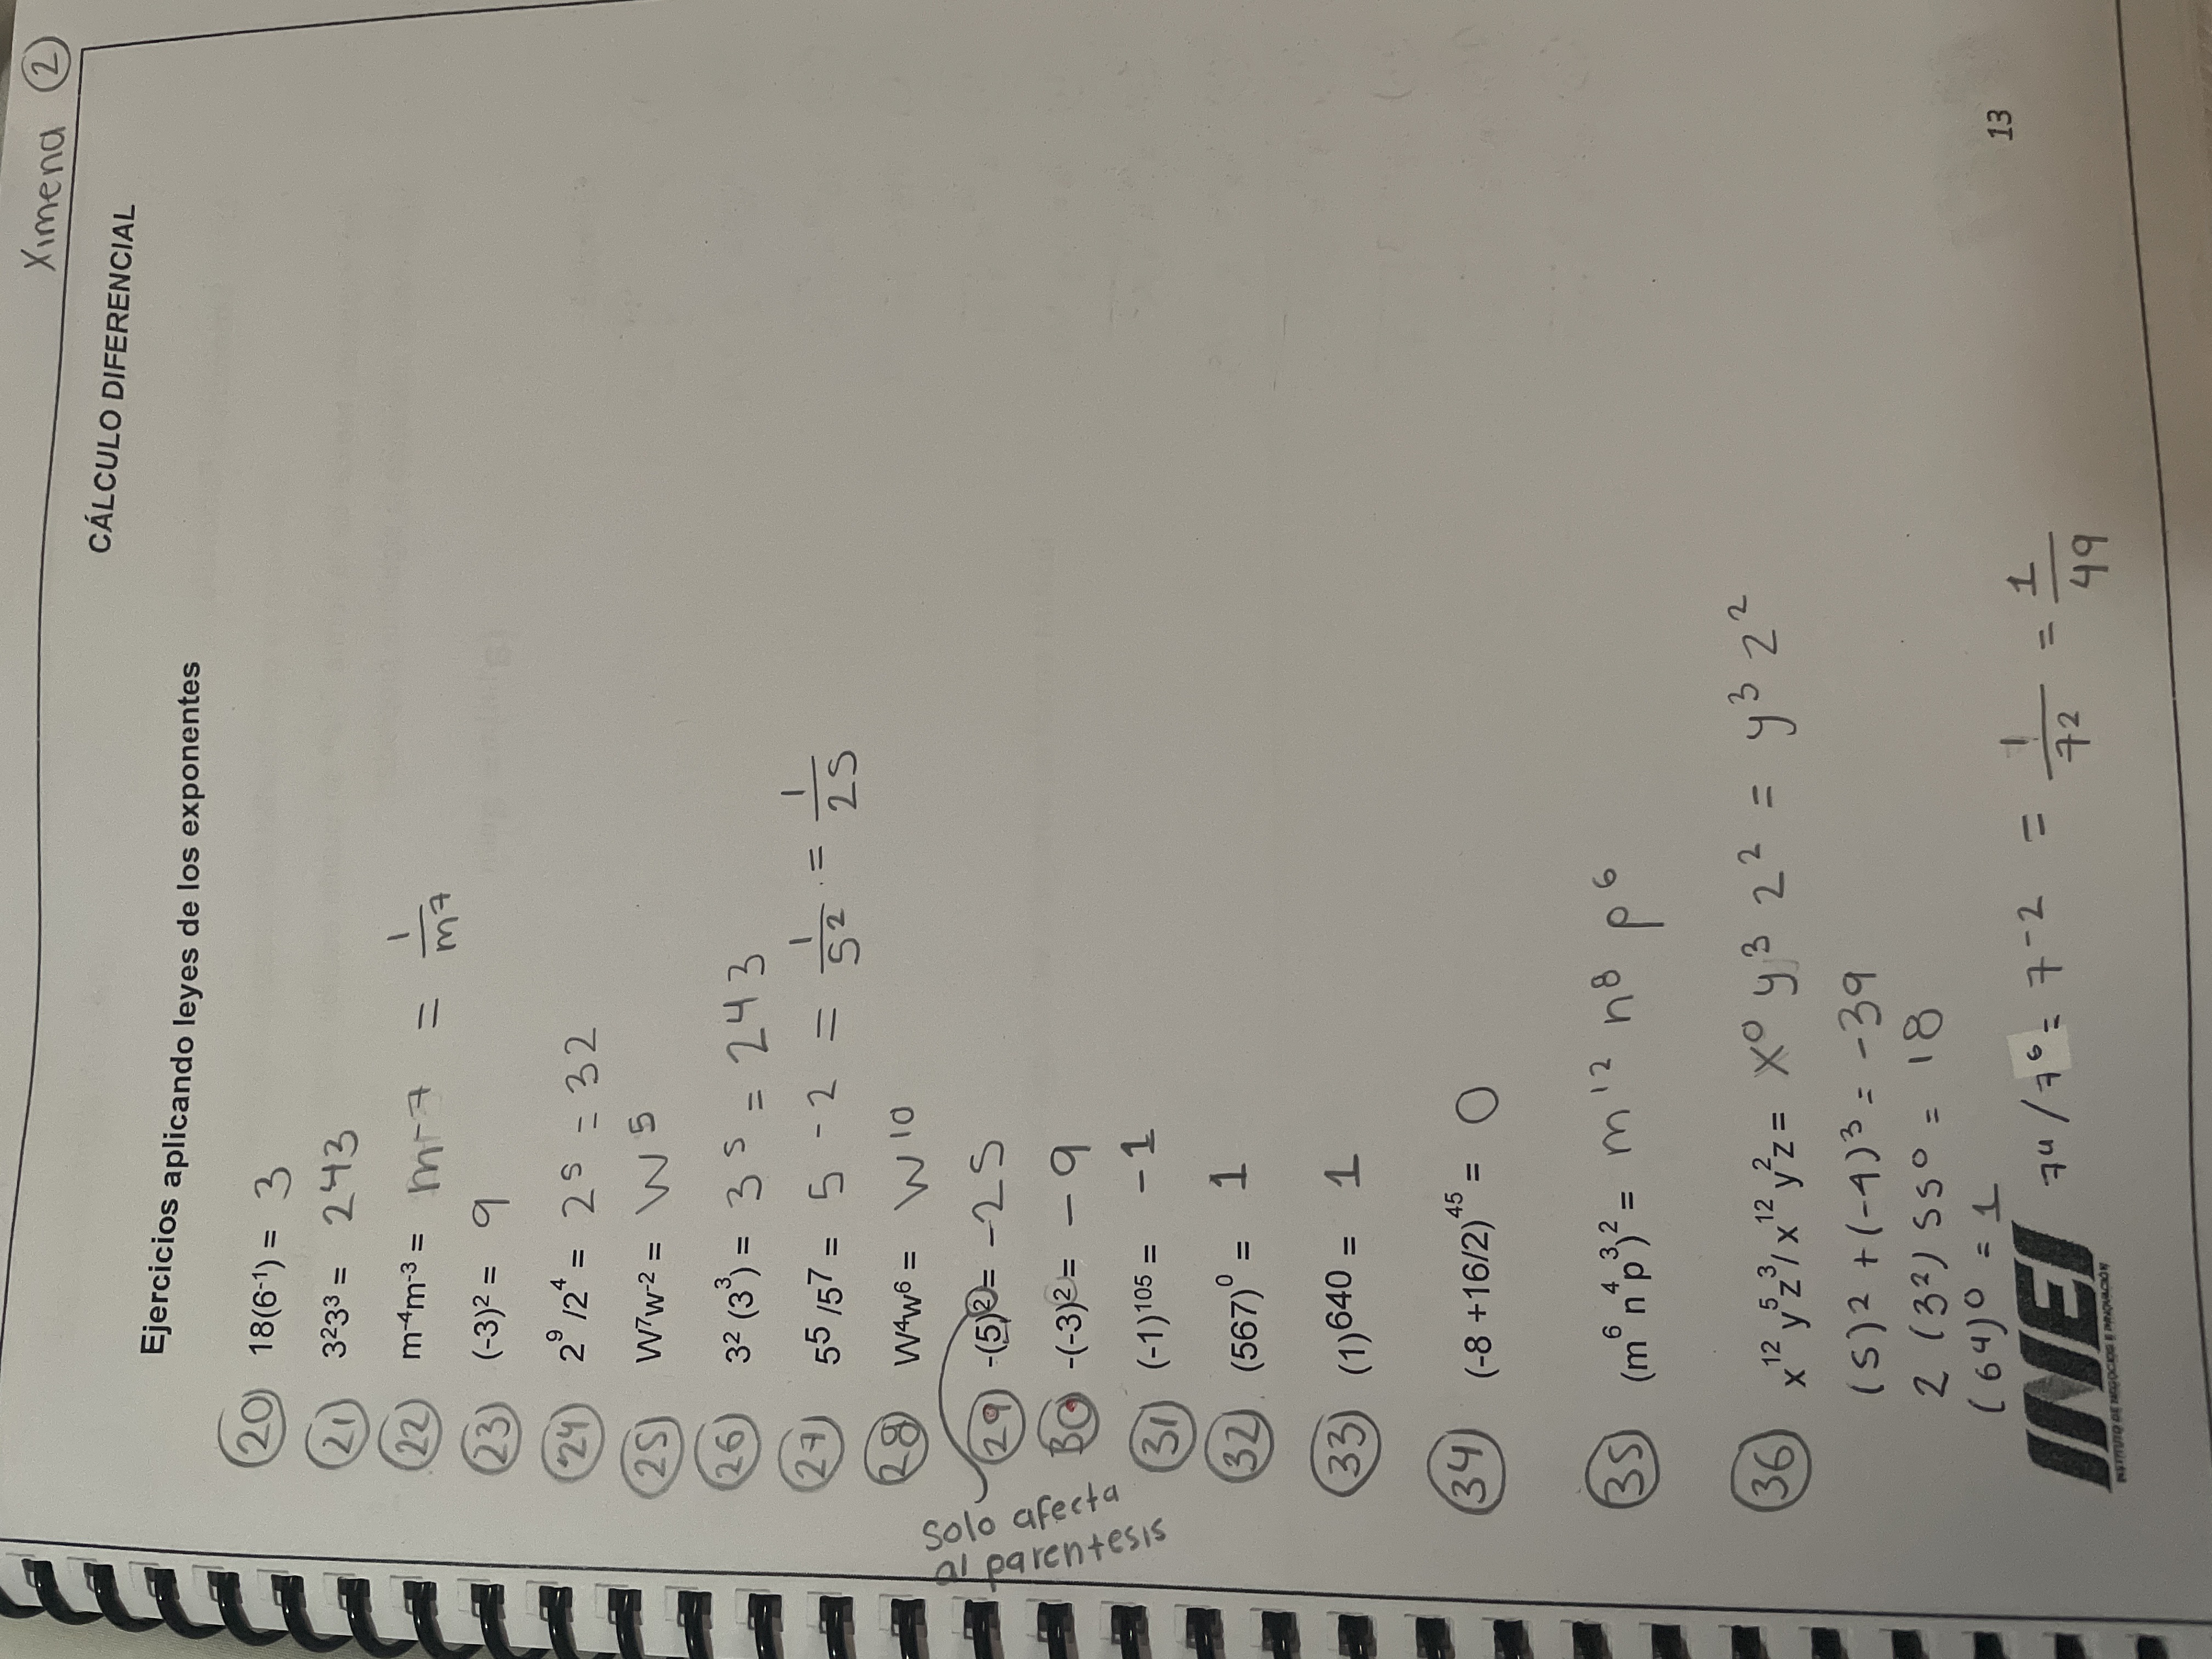 Ximena ②
CÁLCULO DIFERENCIAL
Ejercicios aplicando leyes de los exponentes
20 18(6⁻¹) = 3
21 3²3³ = 243
22 m⁻⁴m⁻³ = m⁻⁷ = 1/m⁷
23 (-3)² = 9
24 2⁹ /2⁴ = 2⁵ = 32
25 W⁷w⁻² = W⁵
26 3² (3³) = 3⁵ = 243
27 5⁵ /5⁷ = 5 -2 = 1/5² = 1/25
28 W⁴w⁶ = W¹⁰
29 -(5)² = -25
solo afecta
al parentesis
30 -(-3)² = -9
31 (-1)¹⁰⁵ = -1
32 (567)⁰ = 1
33 (1)⁶⁴⁰ = 1
34 (-8 +16/2)⁴⁵ = 0
35 (m⁶ n⁴ p³)² = m¹² n⁸ p⁶
36 x¹² y⁵ z³/ x¹² y² z = x⁰ y³ z² = y³ z²
(5)2 + (-4)³ = -39
2 (3²) 55⁰ = 18
(64)⁰ = 1
7⁴ / 7⁶ = 7-2 = 1/7² = 1/49
INEI
INSTITUTO DE NEGOCIOS E INNOVACIÓN
13